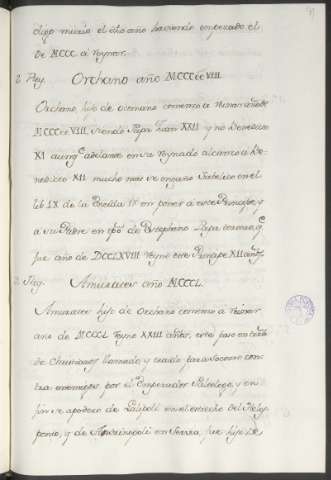 digo murio el dho año haviendo empezado el
de MCCC à reynar.
2. Rey. Orchano año MCCCxxVIII
Orchano, hijo de otomano comenzo a reinar año de
MCCCxxVIII, siendo Papa Juan XXII y no Benedicto
XI aunq adelante en su reynado alcanzo a Be-
nedicto XII mucho mas se engaño Sabelico en el
lib IX de la Eneida IX en poner a este Principe, y
a su Padre en tpo de Estephano Papa
fue año de DCCLXVIII Reyno este Principe XII años.
3. Rey. Amurates año MCCCL.
Amurates hijo de Orchano comenzo a reinar
año de MCCCL Reyno XXIII años, este paso en
de Christianos llamado, y traido para socorro con-
tra enemigos por el Emperador Paleologo, y en
fin se apodero de Galipoli en el estrecho del Heles-
ponto, y de Andrinopoli en Tracia, fue hijo de